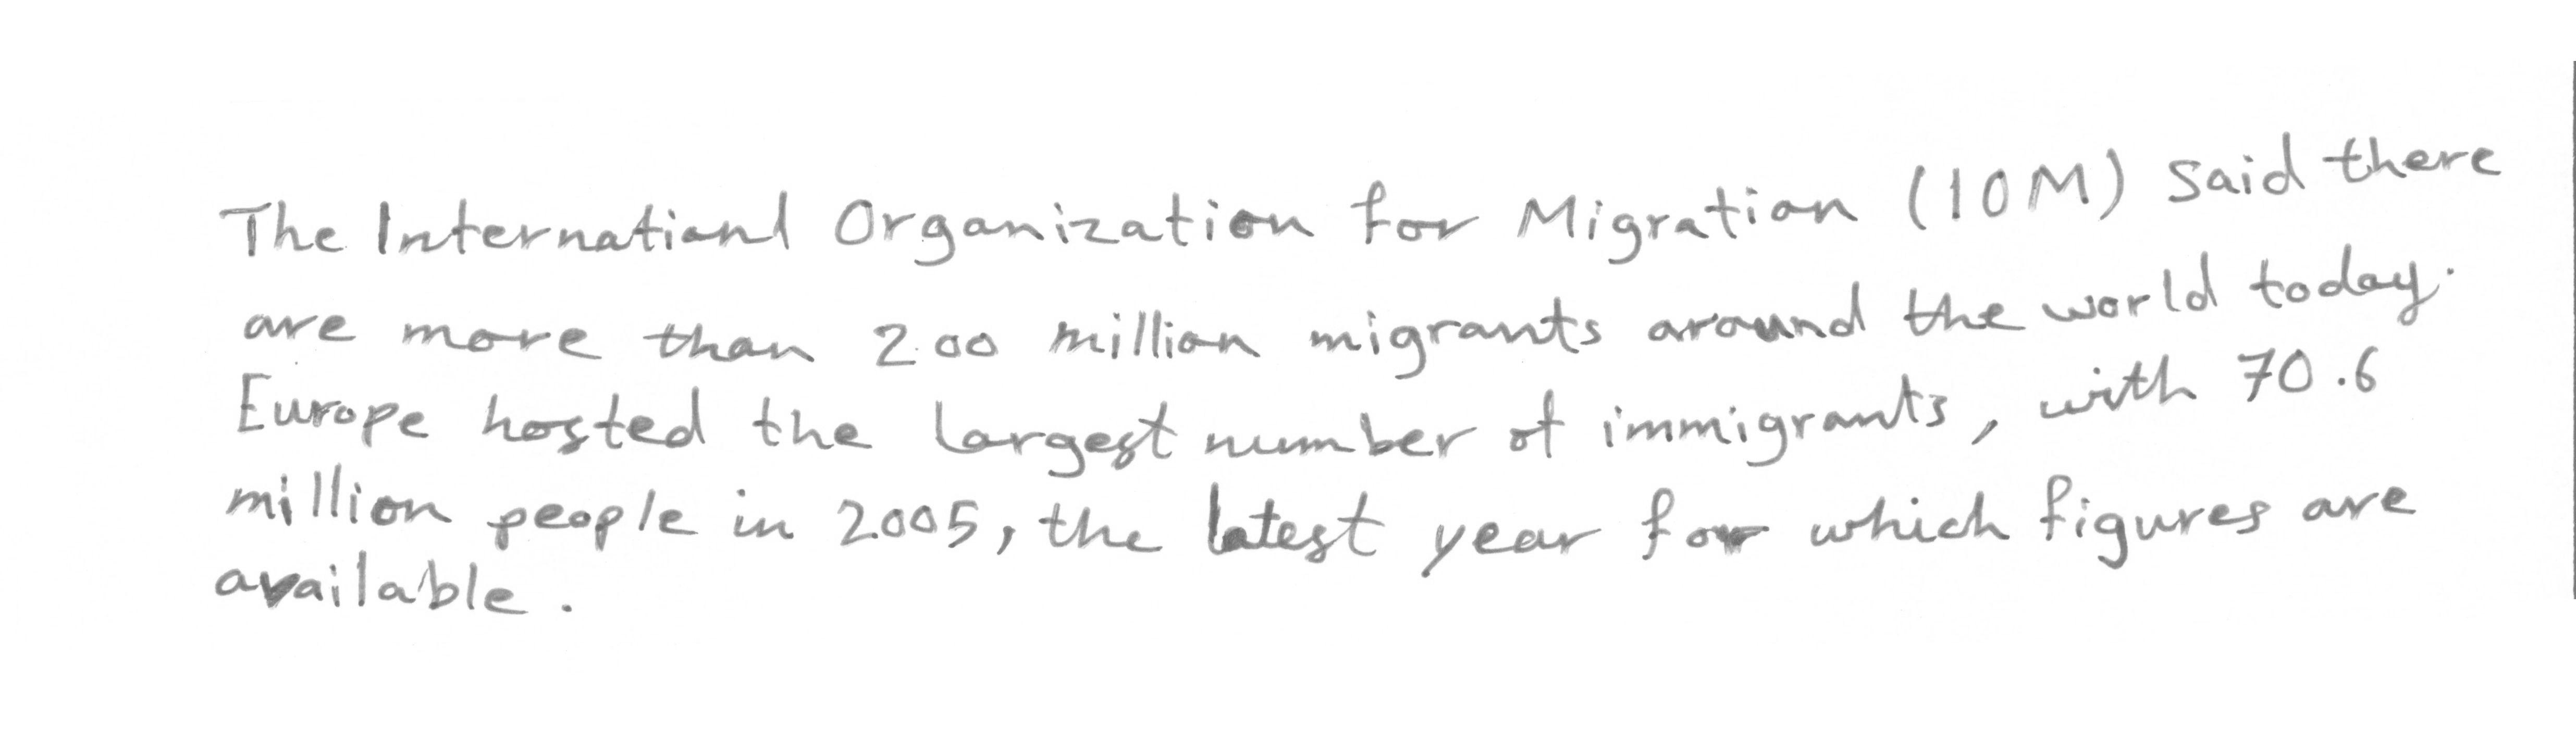 The Internationl Organization for Migration (IOM) said there
are more than 200 million migrants around the world today.
Europe hosted the largest number of immigrants, with 70.6
million people in 2005, the latest year for which figures are
available.